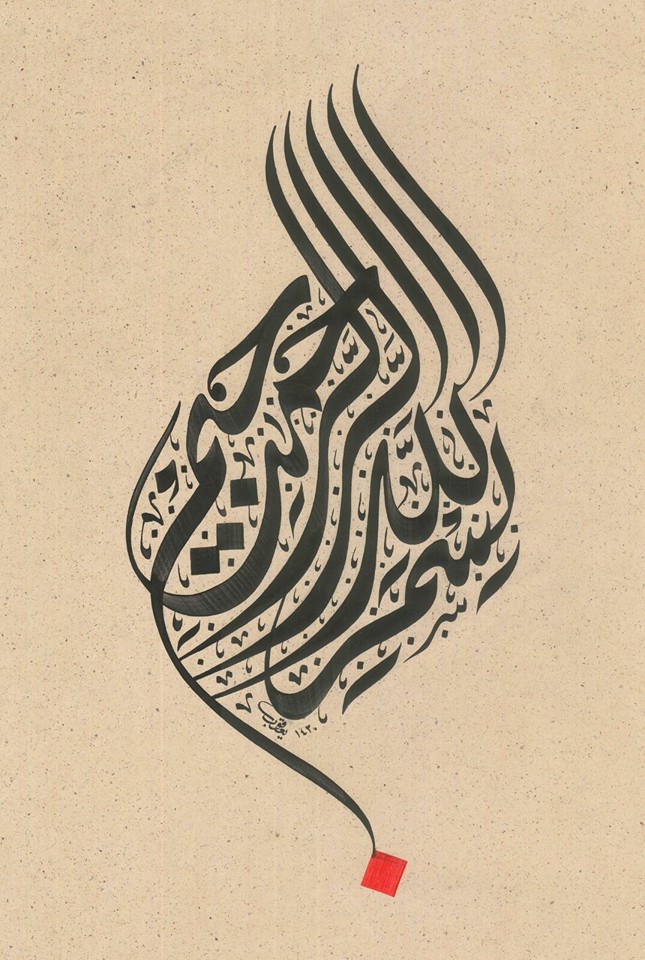 بِسْمِ اللَّهِ الرَّحْمَنِ الرَّحِيمِ
يعقوب
١٤٣٠